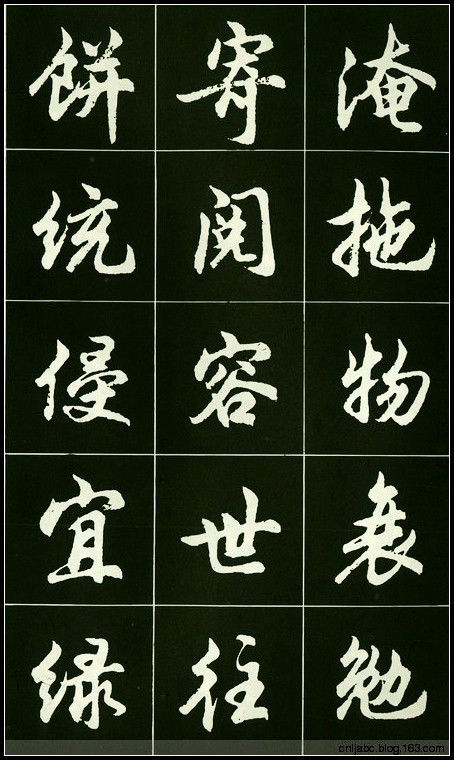 淹拖物衰勉
寄阅容世往
饼统侵宜绿
cnljabc.blog.163.com